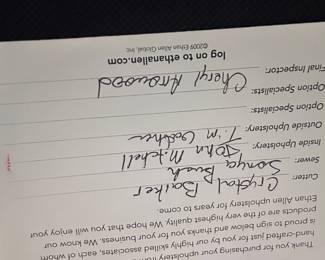 Thank you for purchasing your upholstery
hand-crafted just for you by our highly skilled associates, each of whom
is proud to sign below and thanks you for your business. We know our
products are of the very highest quality. We hope that you will enjoy your
Ethan Allen upholstery for years to come.
Cutter: Crystal Barker
Sewer: Sonya Bush
Inside Upholstery: John Mitchell
Outside Upholstery: Tim
Option Specialists:
Option Specialists:
Final Inspector: Cheryl Arrowood
log on to ethanallen.com
©2009 Ethan Allen Global, Inc.